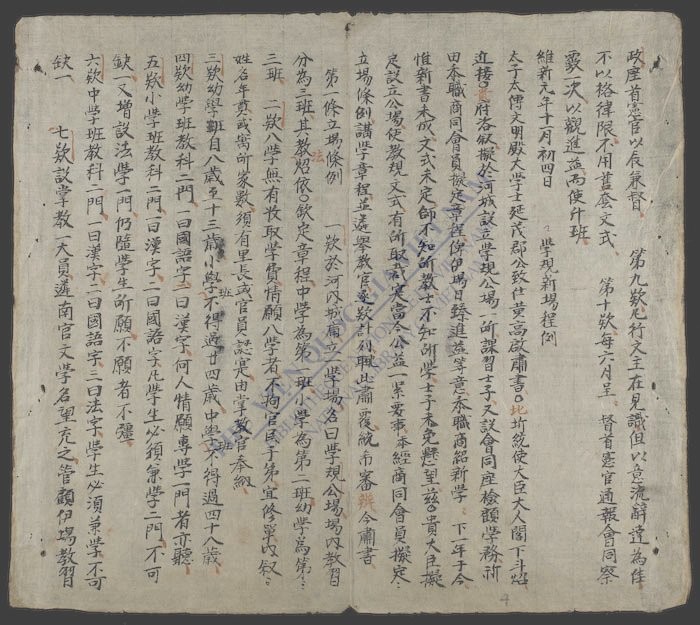 政座首憲官以辰兼督 第九欵凡行文主在見識但以意流辭達為佳
不以格律限不用舊套文式 第十欵每六月呈 督首憲官通報會同察
覈一次以觀進益而使升班
維新元年十一月初四日 學規新場程例
太子太傅文明殿大學士延茂郡公致仕黃高啟肅書○北圻統使大臣大人閣下斗炤
近接○府洛叙擬於河城設立學規公場一所課習士子又設會同座檢顧學務祈
田本職商同會員擬定章程俾伊場日臻進益等意本職商紹新學〻下一年于今
惟新書未成文式未定師不知所教士不知所學士子未免懸望茲○貴大臣擬
定設立公場使教規文式有所取裁寔當今公益一緊要事本經商同會員擬定〻
立場條例講學章程並遴舉教官叄欵計列聯此肅覆統希審辦今肅書
第一條立場條例 一欵於河內城廂立一學場名曰學規公場場內教習
分為三班其教法炤依○欽定章程中學為第一班小學為第二班幼學為第〻
三班 二欵入學無有收取學費情願入學者不拘官民子第宜修單內叙〻
姓名年庚或寓所家數須有里長或官員認寔由掌教官奉納
三欵幼學班自八歲至十三歲小學班不得過廿四歲中學班不得過四十八歲
四欵幼學班教科二門一曰國語字二曰漢字何人情願專學一門者亦聽
五欵小學班教科二門一曰漢字二曰國語字凡學生必須兼學二門不可
缺一又增設法學一門仍隨學生所願不願者不彊
六欵中學班教科三門一曰漢字二曰國語字三曰法字學生必須兼學不可
缺一 七欵設掌教一大員遴南官文學名望充之管顧伊場教習